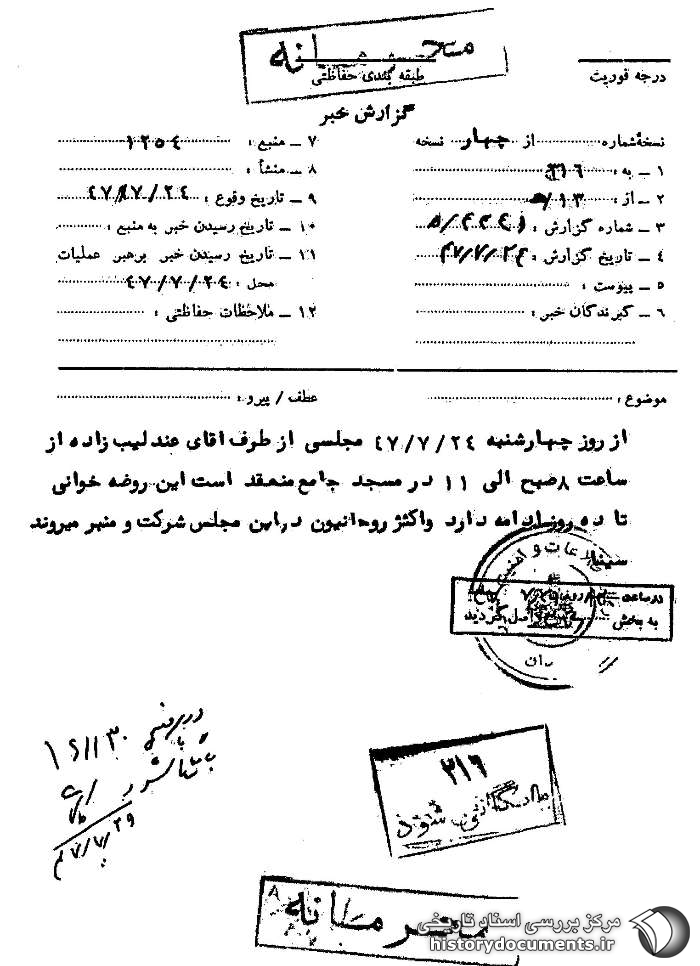 محرمانه
درجه فوریت
طبقه بندی حفاظتی
گزارش خبر
نسخهٔ شماره از چهار نسخه
۱ ــ به : ۳۱۶
۲ ــ از : ۱۳/ه
۳ ــ شماره گزارش :
۴ ــ تاریخ گزارش : ۴۷/۷/۲۴
۵ ــ پیوست :
۶ ــ گیرندگان خبر :
۷ ــ منبع : ۱۲۵۴
۸ ــ منشأ :
۹ ــ تاریخ وقوع : ۴۷/۷/۲۴
۱۰ ــ تاریخ رسیدن خبر به منبع :
۱۱ ــ تاریخ رسیدن خبر برهبر عملیات
محل : ۴۷/۷/۲۴
۱۲ ــ ملاحظات حفاظتی :
موضوع :
عطف / پیرو :
از روز چهارشنبه ۴۷/۷/۲۴ مجلسی از طرف اقای عندلیب زاده از
ساعت ۸صبح الی ۱۱ در مسجد جامع منعقد است این روضه خوانی
تا ده روز ادامه دارد واکثر روحانیون دراین مجلس شرکت و منبر میروند
سینا
در ساعت روز
به بخش واصل گردید
۳۱۶
بایگانی شود
۴۷/۷/۲۹
محرمانه
مرکز بررسی اسناد تاریخی
historydocuments.ir